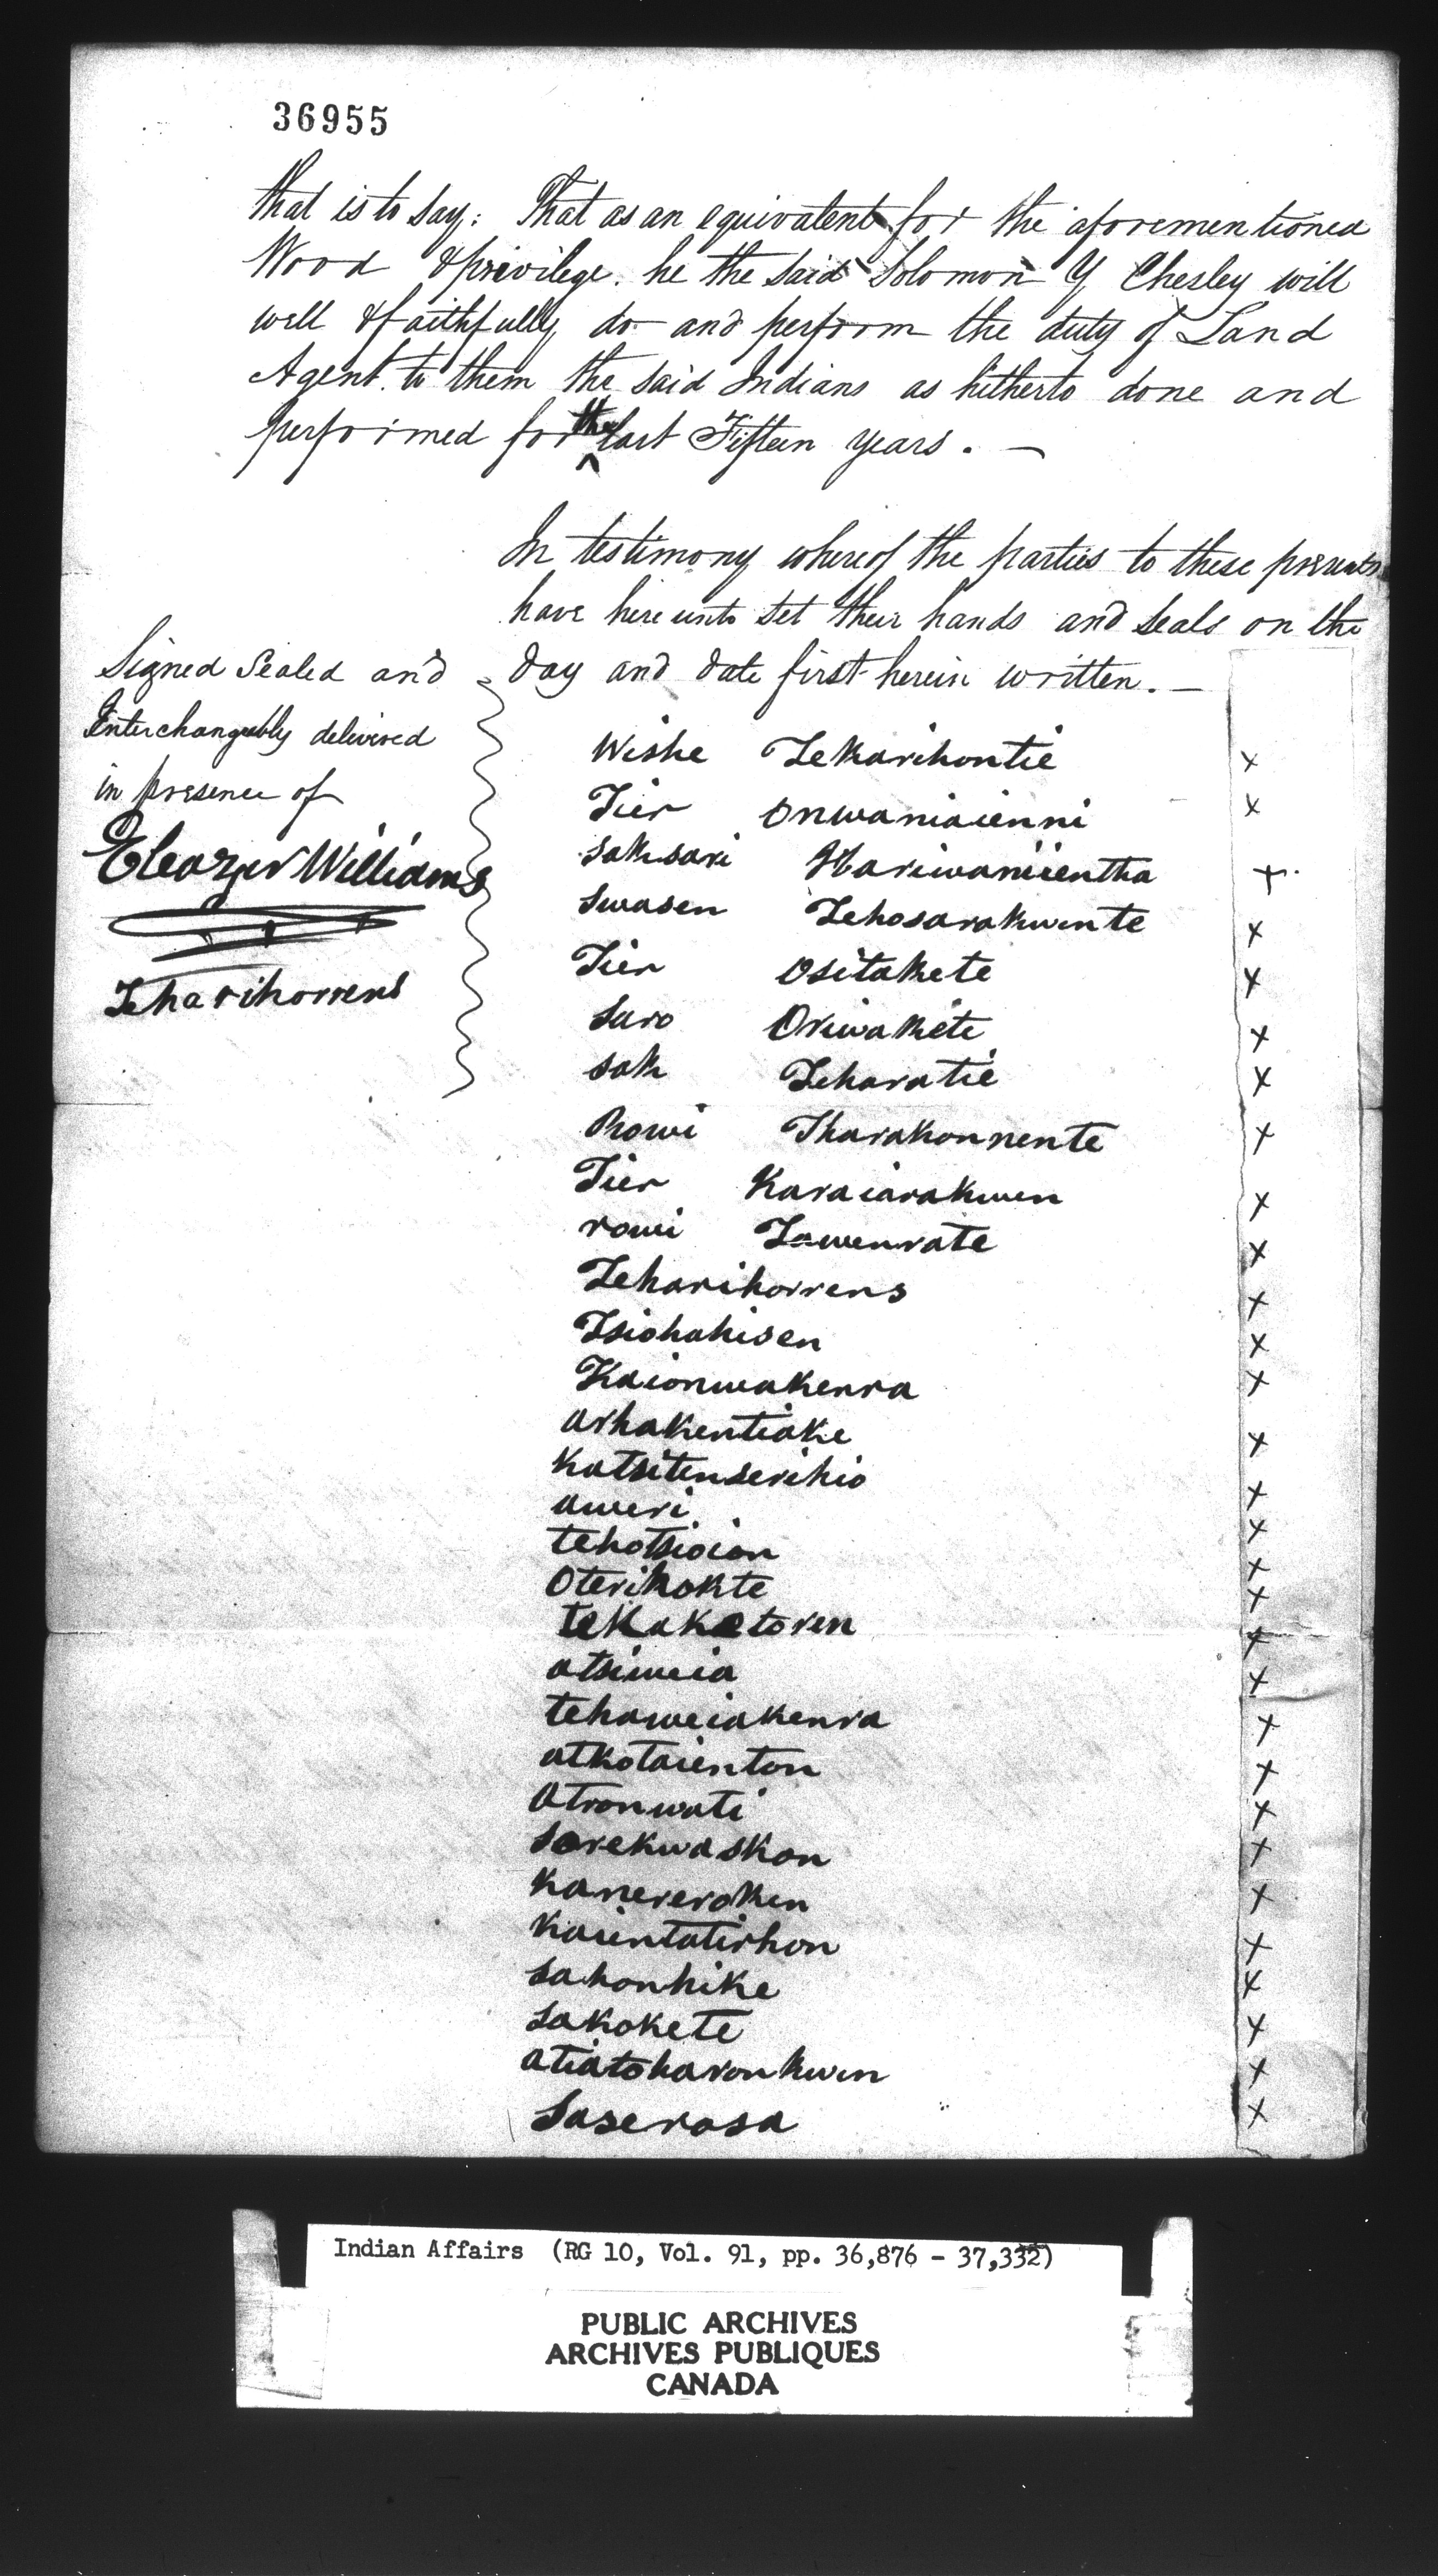 36955
that is to say: That as an equivalent for the aforementioned
Wood & privilege. he the said Solomon Y Chesley will
well & faithfully do and perform the duty of Land
Agent to them the said Indians as hitherto done and
performed for the last Fifteen years. —
In testimony whereof the parties to these presents
have here unto set their hands and seals on the
day and date first herein written. —
Signed Sealed and
Interchangeably delivered
in presence of
Eleazer Williams
Teharihorrens
Wishe Tekarihontie x
Tier Onwaniaienni x
Saksari Hariwaniientha x
Swasen Tehosarakwente x
Tier Ositakete x
Saro Oriwakete x
Sak Teharatie x
Rowi Tharakonnente x
Tier Karaiarakwen x
rowi Tawenrate x
Teharihorrens x
Tsiohahisen x
Kaionwakenra x
arhakentiake x
Katsitenserihio x
aweri x
tehotsioion x
Oterikokte x
tekaketoren x
atsiweia x
tehaweiakenra x
atkotaienton x
Otronwati x
Sorekwaskon x
Kanereroken x
Kaientatirhon x
Sahonhike x
Sakokete x
atiatoharonkwen x
Saserosa x
Indian Affairs (RG 10, Vol. 91, pp. 36,876 - 37,332)
PUBLIC ARCHIVES
ARCHIVES PUBLIQUES
CANADA